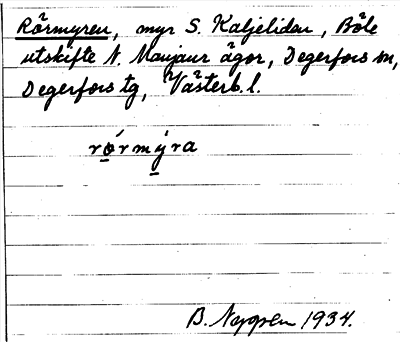 Rörmyren, myr S. Kaljeliden, Böle
utskifte N. Manjaur ägor, Degerfors sn,
Degerfors tg, Västerb. l.
rǫ́rmý̱ra
B. Nyman 1934.